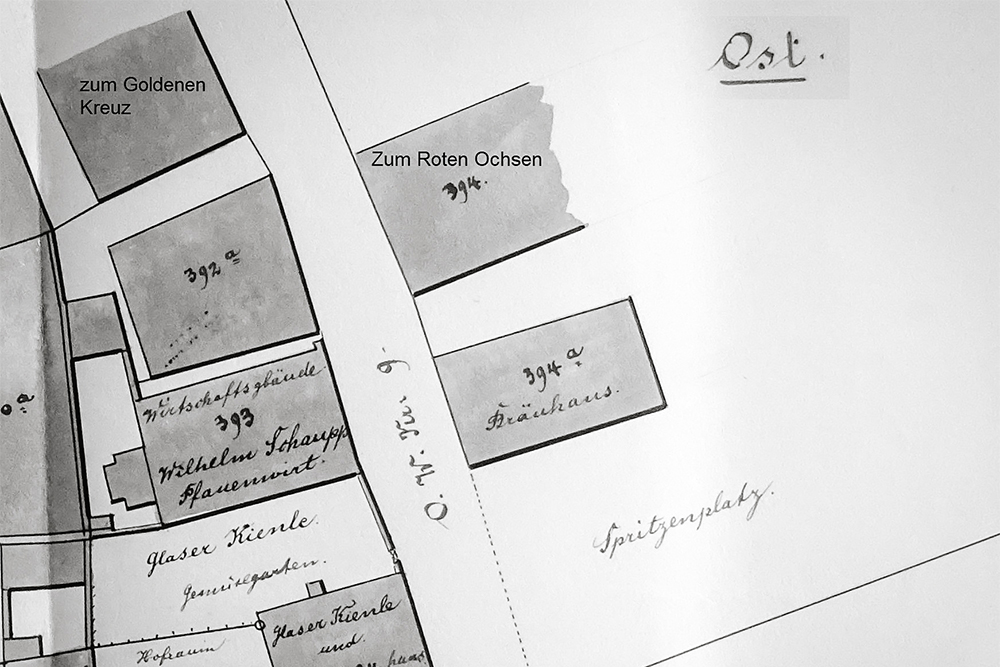 Ost.
zum Goldenen
Kreuz
Zum Roten Ochsen
394.
392a
394a
Bräuhaus.
Wirtschaftsgbäude.
393
Wilhelm Schaupp
Pfauenwirt.
O. W. Nr. 6.
Spritzenplatz.
Glaser Kienle.
Gemüsegarten.
Glaser Kienle
und.
Hofraum